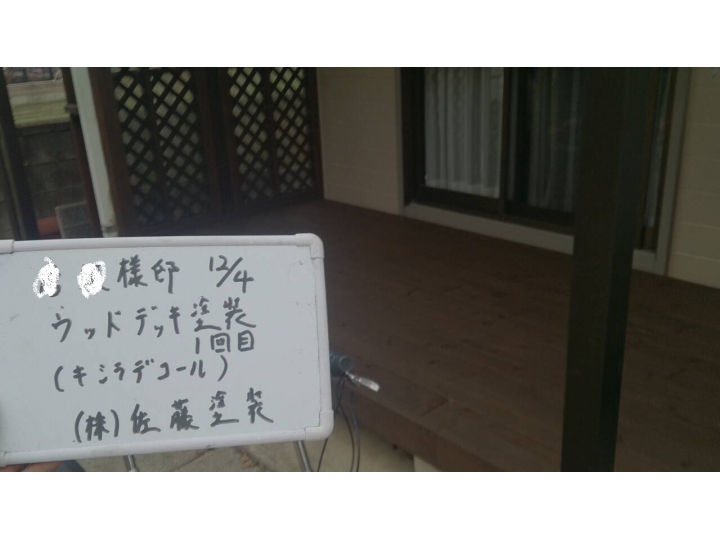 様邸 12/4
ウッドデッキ塗装
1回目
(キシラデコール)
(株)佐藤塗装